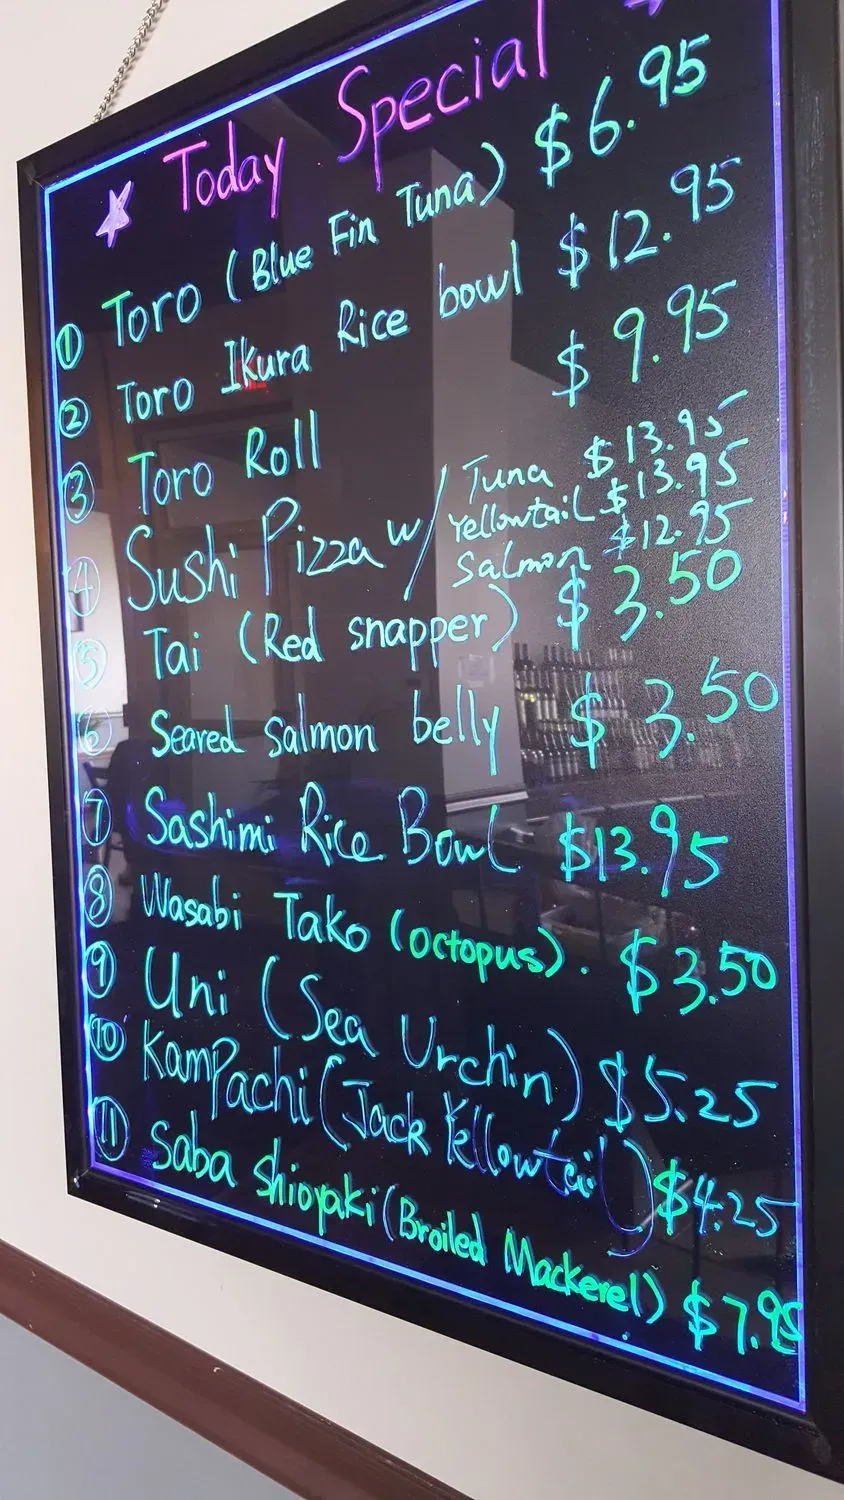 Today Special
① Toro (Blue Fin Tuna) $6.95
② Toro Ikura Rice bowl $12.95
③ Toro Roll $9.95
④ Sushi Pizza w/ Tuna $13.95
Yellowtail $13.95
Salmon $12.95
⑤ Tai (Red snapper) $3.50
⑥ Seared salmon belly $3.50
⑦ Sashimi Rice Bowl $13.95
⑧ Wasabi Tako (octopus). $3.50
⑨ Uni (Sea Urchin) $5.25
⑩ Kampachi (Jack Yellowtail) $4.25
⑪ Saba Shioyaki (Broiled Mackerel) $7.95